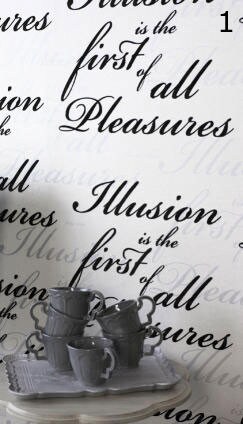 Illusion
is the
first
of all
Pleasures
1
ures
ion
he
all
ures
Illusion
is the
first
of all
ures
sion